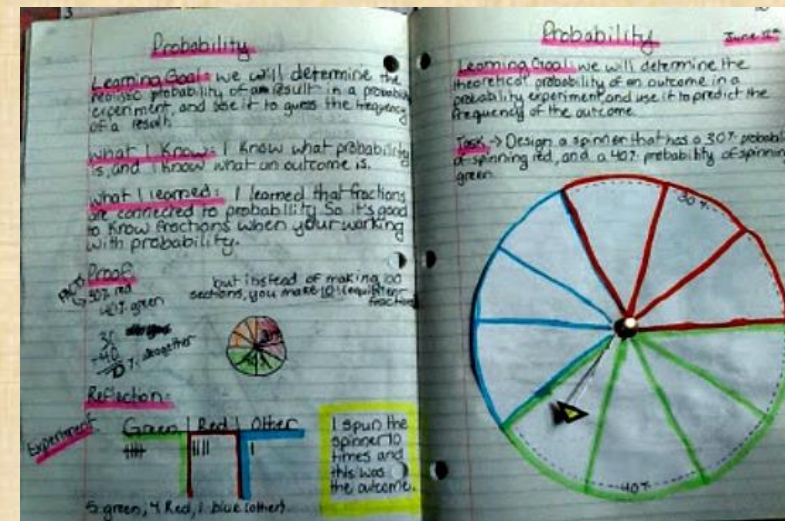 Probability
Learning Goal: we will determine the
realistic probability of a result in a probability
experiment, and use it to guess the frequency
of a result.
What I Know: I know what probability
is, and I know what an outcome is.
What I learned: I learned that fractions
are connected to probability. So it's good
to know fractions when your working
with probability.
Proof:
FACTS
30% red
40% green
30
+40
70% altogether
but instead of making 100
sections, you make 10! (equivilent
fractions
Reflection:
Experiment
Green | Red | Other
5 green, 4 Red, 1 blue (other).
I spun the
spinner 10
times and
this was
the outcome.
Probability
June 12th
Learning Goal: we will determine the
theoretical probability of an outcome in a
probability experiment and use it to predict the
frequency of the outcome.
Task → Design a spinner that has a 30% probabili
of spinning red, and a 40% probability of spinning
green.
30%
40%